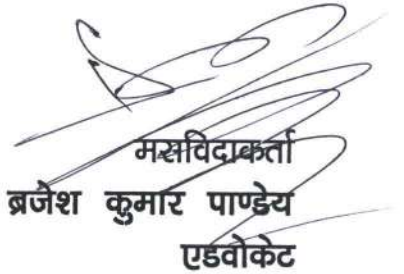 मसविदाकर्ता
ब्रजेश कुमार पाण्डेय
एडवोकेट